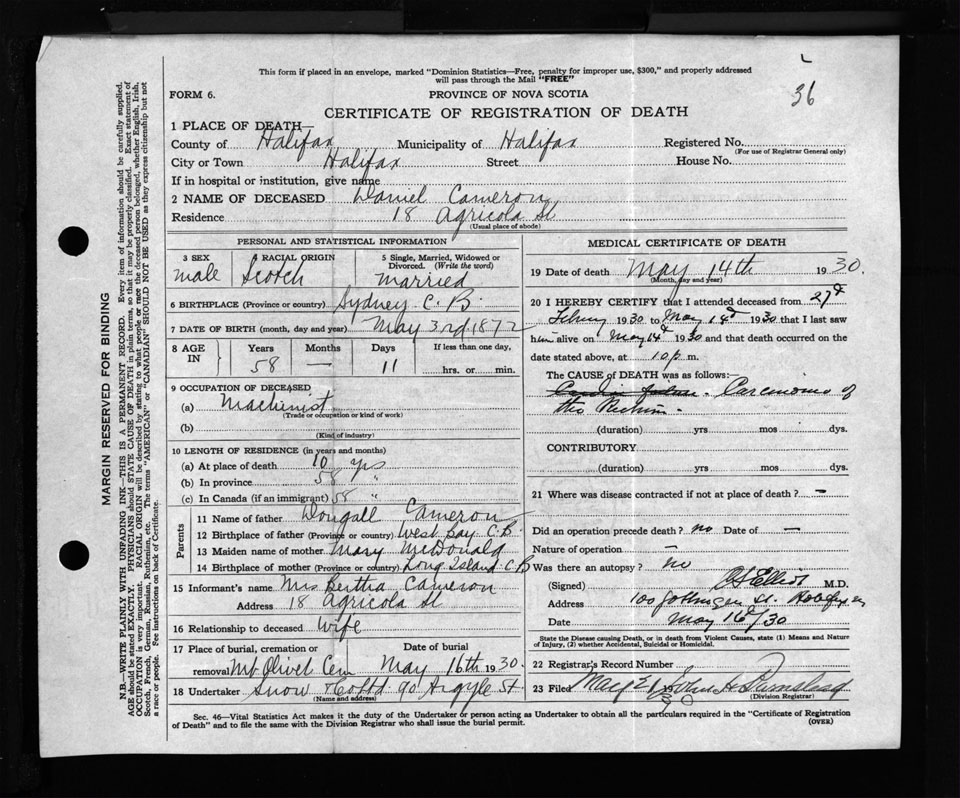 This form if placed in an envelope, marked "Dominion Statistics—Free, penalty for improper use, $300," and properly addressed
will pass through the Mail "FREE"
36
FORM 6.
PROVINCE OF NOVA SCOTIA
CERTIFICATE OF REGISTRATION OF DEATH
1 PLACE OF DEATH—
County of Halifax Municipality of Halifax Registered No.
(For use of Registrar General only)
City or Town Halifax Street House No.
If in hospital or institution, give name
2 NAME OF DECEASED Daniel Cameron
Residence 18 Agricola St
(Usual place of abode)
PERSONAL AND STATISTICAL INFORMATION
3 SEX 4 RACIAL ORIGIN 5 Single, Married, Widowed or
Divorced. (Write the word)
male Scotch Married
6 BIRTHPLACE (Province or country) Sydney C. B.
7 DATE OF BIRTH (month, day and year) May 3rd 1872
8 AGE IN Years Months Days If less than one day,
58 — 11 hrs. or min.
9 OCCUPATION OF DECEASED
(a) Machinist
(Trade or occupation or kind of work)
(b)
(Kind of industry)
10 LENGTH OF RESIDENCE (in years and months)
(a) At place of death 10 yrs
(b) In province 58 "
(c) In Canada (if an immigrant) 58 "
Parents
11 Name of father Dougall Cameron
12 Birthplace of father (Province or country) West Bay C.B.
13 Maiden name of mother Mary McDonald
14 Birthplace of mother (Province or country) Long Island C B
15 Informant's name Mrs Bertha Cameron
Address 18 Agricola St
16 Relationship to deceased Wife
17 Place of burial, cremation or Date of burial
removal Mt Olivet Cem May 16th 1930
18 Undertaker Snow & Co Ltd 90 Argyle St
(Name and address)
MEDICAL CERTIFICATE OF DEATH
19 Date of death May 14th 1930.
(Month, day and year)
20 I HEREBY CERTIFY that I attended deceased from 27th
1930 to May 14th 1930 that I last saw
him alive on May 14th 1930 and that death occurred on the
date stated above, at 10 p. m.
The CAUSE of DEATH was as follows:—
Carcinoma of
the Rectum.
(duration) yrs mos dys.
CONTRIBUTORY
(duration) yrs mos dys.
21 Where was disease contracted if not at place of death? —
Did an operation precede death? no Date of —
Nature of operation —
Was there an autopsy? no
(Signed) Elliot M.D.
Address 100 St.
Date May 16th/30
State the Disease causing Death, or in death from Violent Causes, state (1) Means and Nature
of Injury, (2) whether Accidental, Suicidal or Homicidal.
22 Registrar's Record Number
23 Filed May 21 John
(Division Registrar)
Sec. 46—Vital Statistics Act makes it the duty of the Undertaker or person acting as Undertaker to obtain all the particulars required in the "Certificate of Registration
of Death" and to file the same with the Division Registrar who shall issue the burial permit.
(OVER)
MARGIN RESERVED FOR BINDING
N.B.—WRITE PLAINLY WITH UNFADING INK—THIS IS A PERMANENT RECORD. Every item of information should be carefully supplied.
AGE should be stated EXACTLY. PHYSICIANS should STATE CAUSE OF DEATH in plain terms, so that it may be properly classified. Exact statement of
OCCUPATION is very important. RACIAL ORIGIN will be described by stating to what people or race the deceased person belonged, whether English, Irish,
Scotch, French, German, Russian, Ruthenian, etc. The terms "AMERICAN" or "CANADIAN" SHOULD NOT BE USED as they express citizenship but not
a race or people. See instructions on back of Certificate.